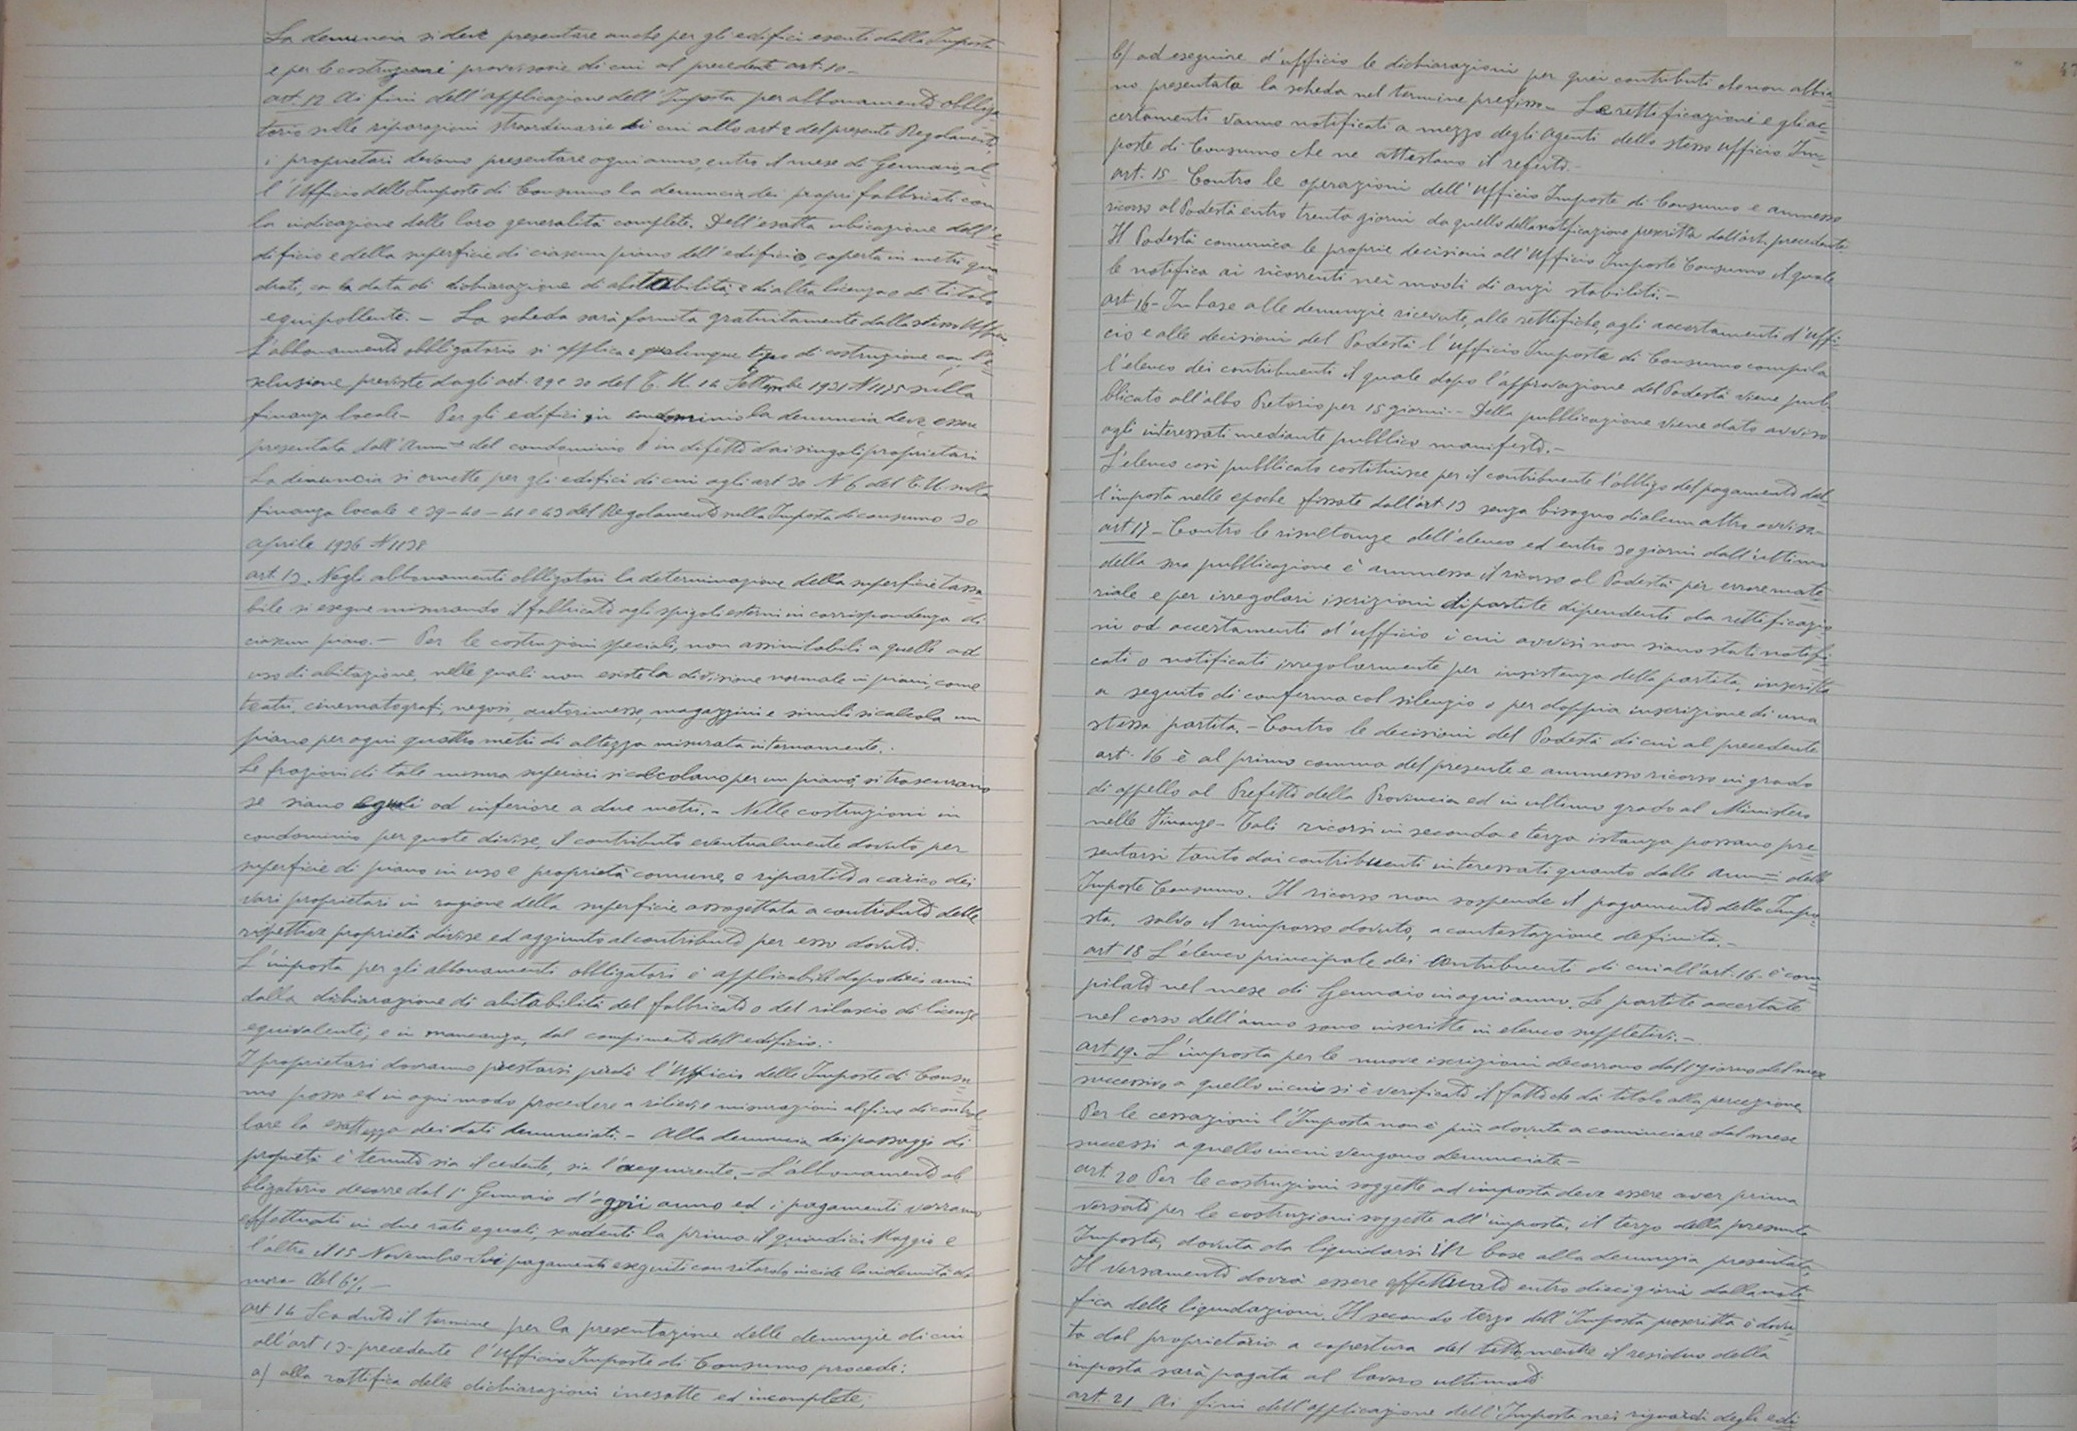 La denuncia si deve presentare anche per gli edifici esenti dalla Imposta
e per le costruzioni provvisorie di cui al precedente art. 10 -
art. 12 Ai fini dell'applicazione dell'Imposta per abbonamento obbliga-
torio sulle riparazioni straordinarie di cui allo art 2 del presente Regolamento
i proprietari devono presentare ogni anno, entro il mese di Gennaio, al-
l'Ufficio delle Imposte di Consumo la denuncia dei propri fabbricati con
la indicazione delle loro generalità complete. Dell'esatta ubicazione dell'e-
dificio e della superficie di ciascun piano dell'edificio, coperta in metri qua-
drati, con la data di dichiarazione di abitabilità, e di altra licenza o di titolo
equipollente. - La scheda sarà fornita gratuitamente dallo stesso Ufficio
L'abbonamento obbligatorio si applica a qualunque tipo di costruzione con l'e-
sclusione previste dagli art. 29 e 30 del T. U. 14 Settembre 1931 N 1175 sulla
finanza locale - Per gli edifici in condominio la denuncia deve essere
presentata dall'Amm.re del condominio o in difetto dai singoli proprietari
La denuncia si omette per gli edifici di cui agli art 30 N 6 del T. U. sulla
finanza locale e 39 - 40 - 41 e 43 del Regolamento sulla Imposta di consumo 30
aprile 1936 N 1138
art. 13. Negli abbonamenti obbligatori la determinazione della superficie tassa-
bile si esegue misurando il fabbricato agli spigoli esterni in corrispondenza di
ciascun piano. - Per le costruzioni speciali, non assimilabili a quelle ad
uso di abitazione, nelle quali non esiste la divisione normale in piani, come
teatri, cinematografi, negozi, autorimesse, magazzini e simili si calcola un
piano per ogni quattro metri di altezza misurata internamente. -
Le frazioni di tale misura superiori si calcolano per un piano, si trascurano
se siano eguali od inferiore a due metri. - Nelle costruzioni in
condominio per quote divise, il contributo eventualmente dovuto per
superficie di piano in uso e proprietà comune, e ripartito a carico dei
vari proprietari in ragione della superficie assogettata a contributo delle
rispettive proprietà divise ed aggiunto al contributo per esso dovuto.
L'imposta per gli abbonamenti obbligatori è applicabile dopo dieci anni
dalla dichiarazione di abitabilità del fabbricato o del rilascio di licenze
equivalenti, e in mancanza, dal compimento dell'edificio. -
I proprietari dovranno prestarsi perché l'Ufficio delle Imposte di Consu-
mo possa ed in ogni modo procedere a rilievi e misurazioni al fine di control-
lare la esattezza dei dati denunciati. - Alla denuncia dei passaggi di
proprietà è tenuto sia il cedente, sia l'acquirente. - L'abbonamento ob-
bligatorio decorre dal 1° Gennaio d'ogni anno ed i pagamenti verranno
effettuati in due rate eguali, scadenti la prima il quindici Maggio e
l'altra il 15 Novembre. Sui pagamenti eseguiti con ritardo incide la indennità di
mora del 6%. -
art 14 Scaduto il termine per la presentazione delle denunzie di cui
all'art 13 - precedente l'Ufficio Imposte di Consumo procede:
a) alla rettifica delle dichiarazioni inesatte ed incomplete;
b) ad eseguire d'ufficio le dichiarazioni per quei contributi che non abbia-
no presentata la scheda nel termine prefisso - Le rettificazioni e gli ac-
certamenti vanno notificati a mezzo degli Agenti dello stesso Ufficio Im-
poste di Consumo che ne attestano il referto. -
art. 15 - Contro le operazioni dell'Ufficio Imposte di Consumo e ammesso
ricorso al Podestà entro trenta giorni da quello della notificazione prescritta dall'art. precedente.
Il Podestà comunica le proprie decisioni all'Ufficio Imposte Consumo il quale
le notifica ai ricorrenti nei modi di anzi stabiliti. -
art 16 - In base alle denunzie ricevute, alle rettifiche, agli accertamenti d'uffi-
cio e alle decisioni del Podestà l'Ufficio Imposte di Consumo compila
l'elenco dei contribuenti il quale dopo l'approvazione del Podestà viene pub-
blicato all'albo Pretorio per 15 giorni - Della pubblicazione viene dato avviso
agli interessati mediante pubblico manifesto. -
L'elenco così pubblicato costituisce per il contribuente l'obbligo del pagamento del-
l'imposta nelle epoche fissate dall'art. 13 senza bisogno di alcun altro avviso -
art 17 - Contro le risultanze dell'elenco ed entro 30 giorni dall'ultimo
della sua pubblicazione è ammesso il ricorso al Podestà per errore mate-
riale e per irregolari iscrizioni di partite dipendenti da rettificazio-
ni od accertamenti d'ufficio i cui avvisi non siano stati notifi-
cati o notificati irregolarmente per insistenza della partita, inscritta
a seguito di conferma col silenzio o per doppia inscrizione di una
stessa partita. - Contro le decisioni del Podestà di cui al precedente
art. 16 è al primo comma del presente e ammesso ricorso in grado
di appello al Prefetto della Provincia ed in ultimo grado al Ministero
nelle Finanze - Tali ricorsi in seconda e terza istanza possano pre-
sentarsi tanto dai contribuenti interessati quanto dalle Amm.ni delle
Imposte Consumo. Il ricorso non sospende il pagamento della Impo-
sta, salvo il rimborso dovuto, a contestazione definita. -
art 18 L'elenco principale dei contribuenti di cui all'art. 16 - è com-
pilato nel mese di Gennaio in ogni anno. Le partite accertate
nel corso dell'anno sono inscritte in elenco suppletivi. -
art 19. L'imposta per le nuove iscrizioni decorrono dal 1° giorno del mese
successivo a quello in cui si è verificato il fatto che dà titolo alla percezione
Per le cessazioni l'Imposta non è più dovuta a cominciare dal mese
successi a quello in cui vengono denunciate -
art. 20 Per le costruzioni soggette ad imposta deve essere aver prima
versato per le costruzioni soggette all'imposta, il terzo della presunta
Imposta, dovuta da liquidarsi in base alla denunzia presentata,
Il versamento dovrà essere effettuato entro dieci giorni dalla noti-
fica delle liquidazioni. Il secondo terzo dell'Imposta poscritta è dovu-
to dal proprietario a copertura del tetto, mentre il residuo della
imposta sarà pagata al lavoro ultimato
art. 21 Ai fini dell'applicazione dell'Imposta nei riguardi degli edi-